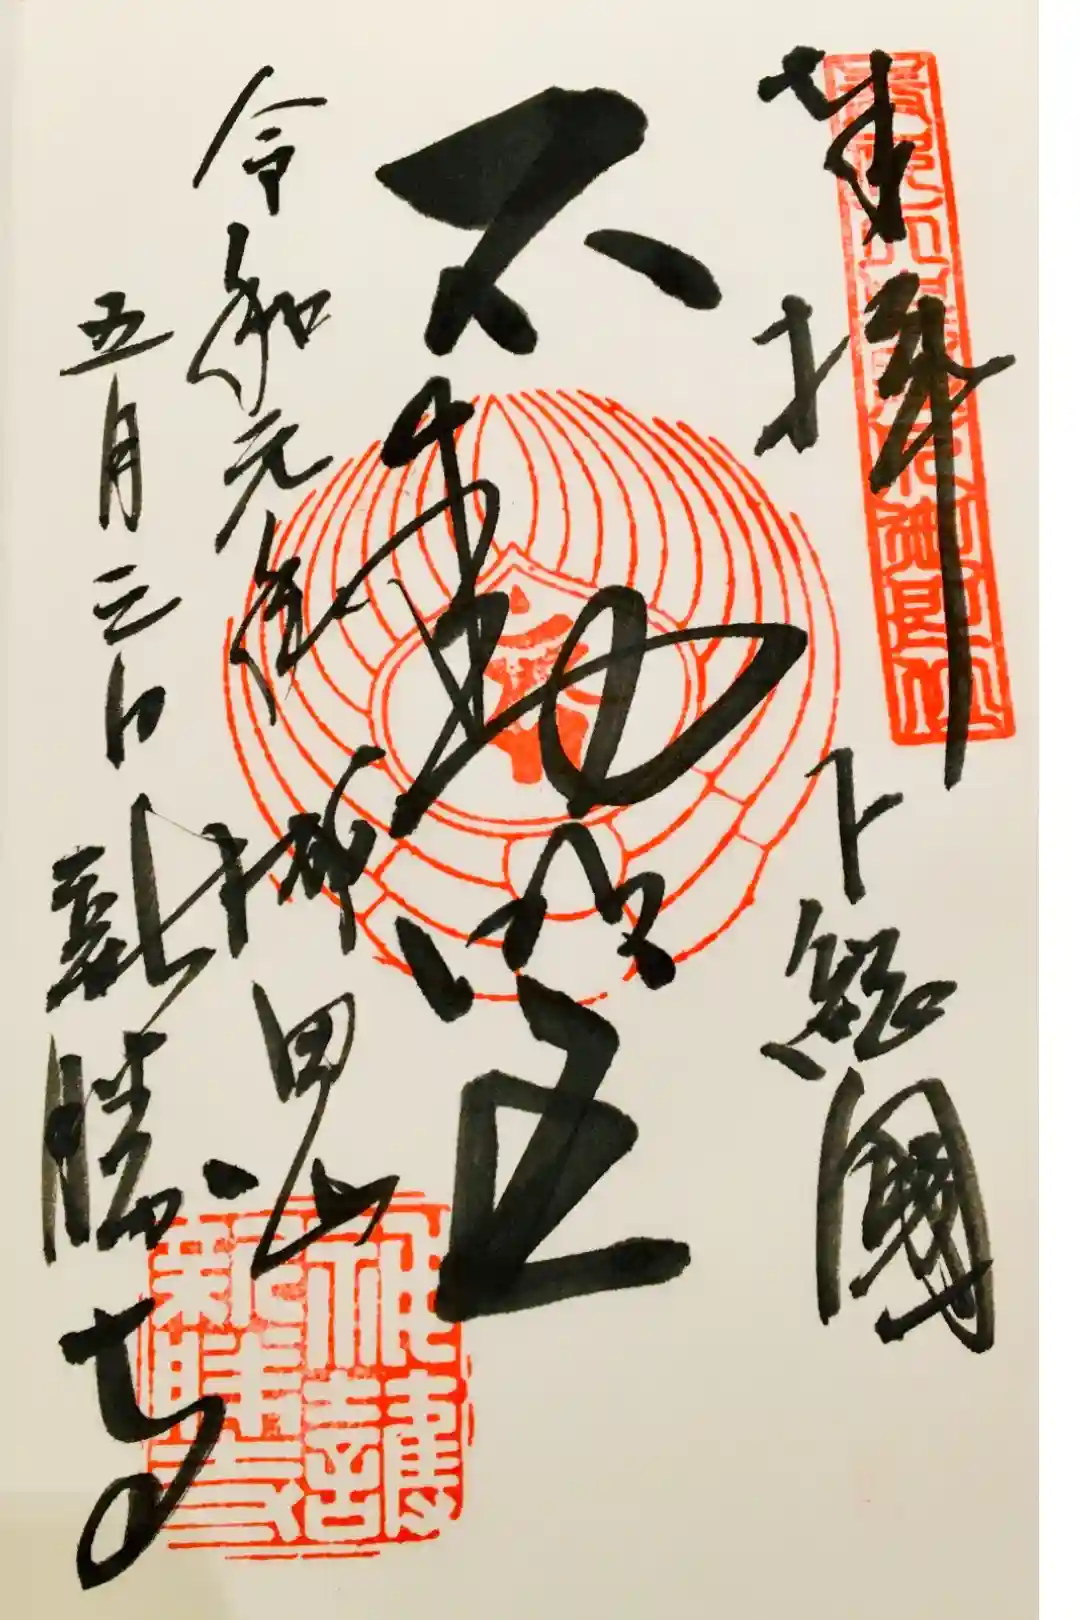 奉拝
下総國
不動明王
令和元年
五月三日
田山
新勝寺
神護
新勝寺